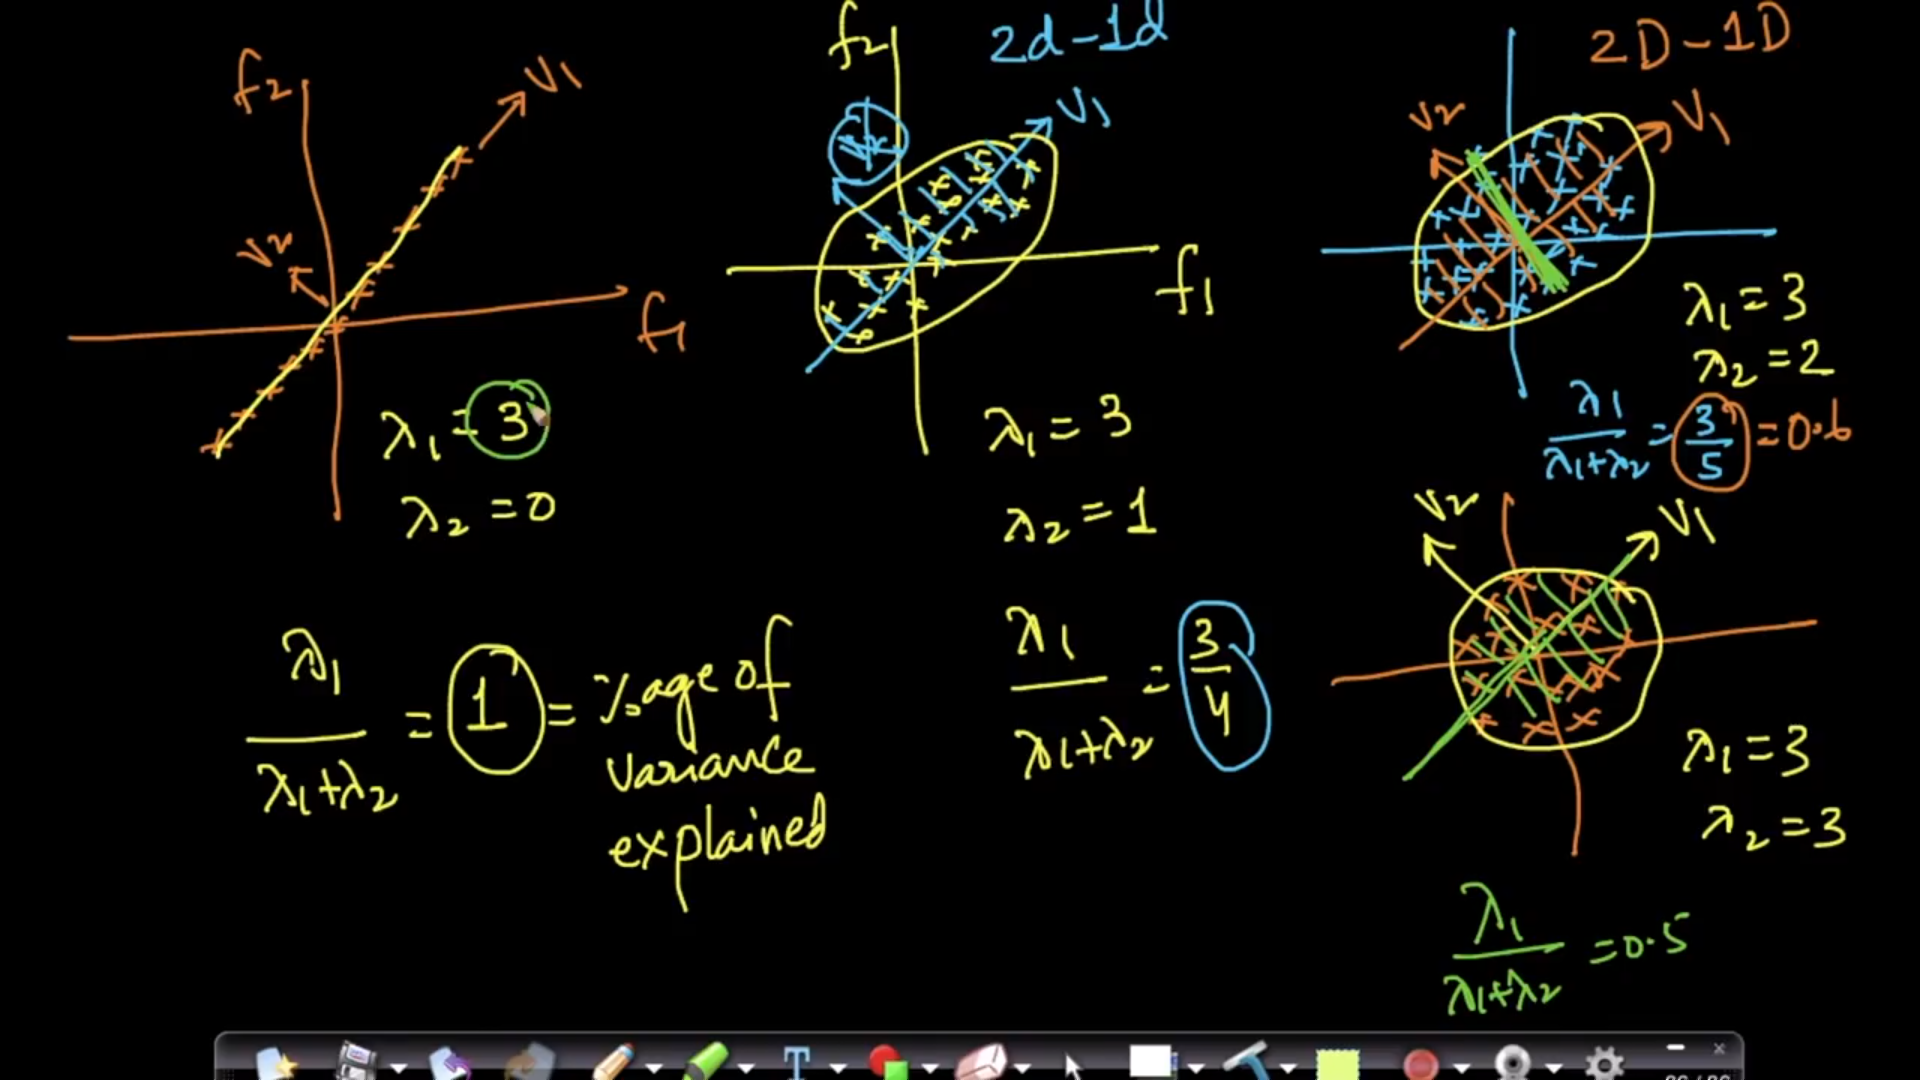 f2
V1
V2
f1
λ1 = 3
λ2 = 0
λ1
λ1+λ2
= 1 = %age of
variance
explained
2d-1d
f2
V1
f1
λ1 = 3
λ2 = 1
λ1
λ1+λ2
= 3
4
2D-1D
V2
V1
λ1 = 3
λ2 = 2
λ1
λ1+λ2
= 3
5
= 0.6
V2
V1
λ1 = 3
λ2 = 3
λ1
λ1+λ2
= 0.5
T